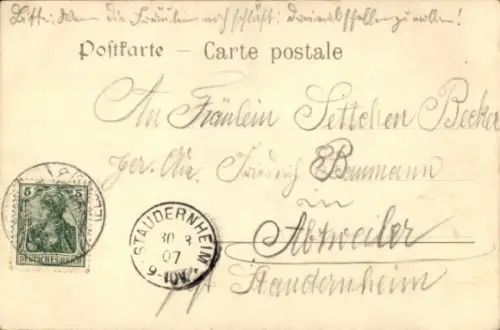 Bitte: Wenn die Fräulein noch schläft: dreimal schellen zu wollen!
Postkarte – Carte postale
An Fräulein Settchen Becker
per. Adr. Friedrich Baumann
in
Abtweiler
Post Staudernheim
5 5
DEUTSCHES REICH
STAUDERNHEIM
30 3
07
9-10V